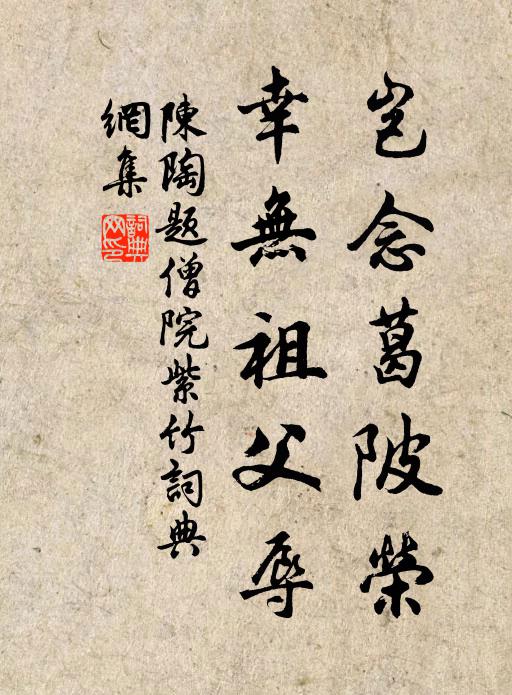 豈念葛陂榮
幸無祖父辱
陳陶題僧院紫竹詞典
網集
詞典
网印